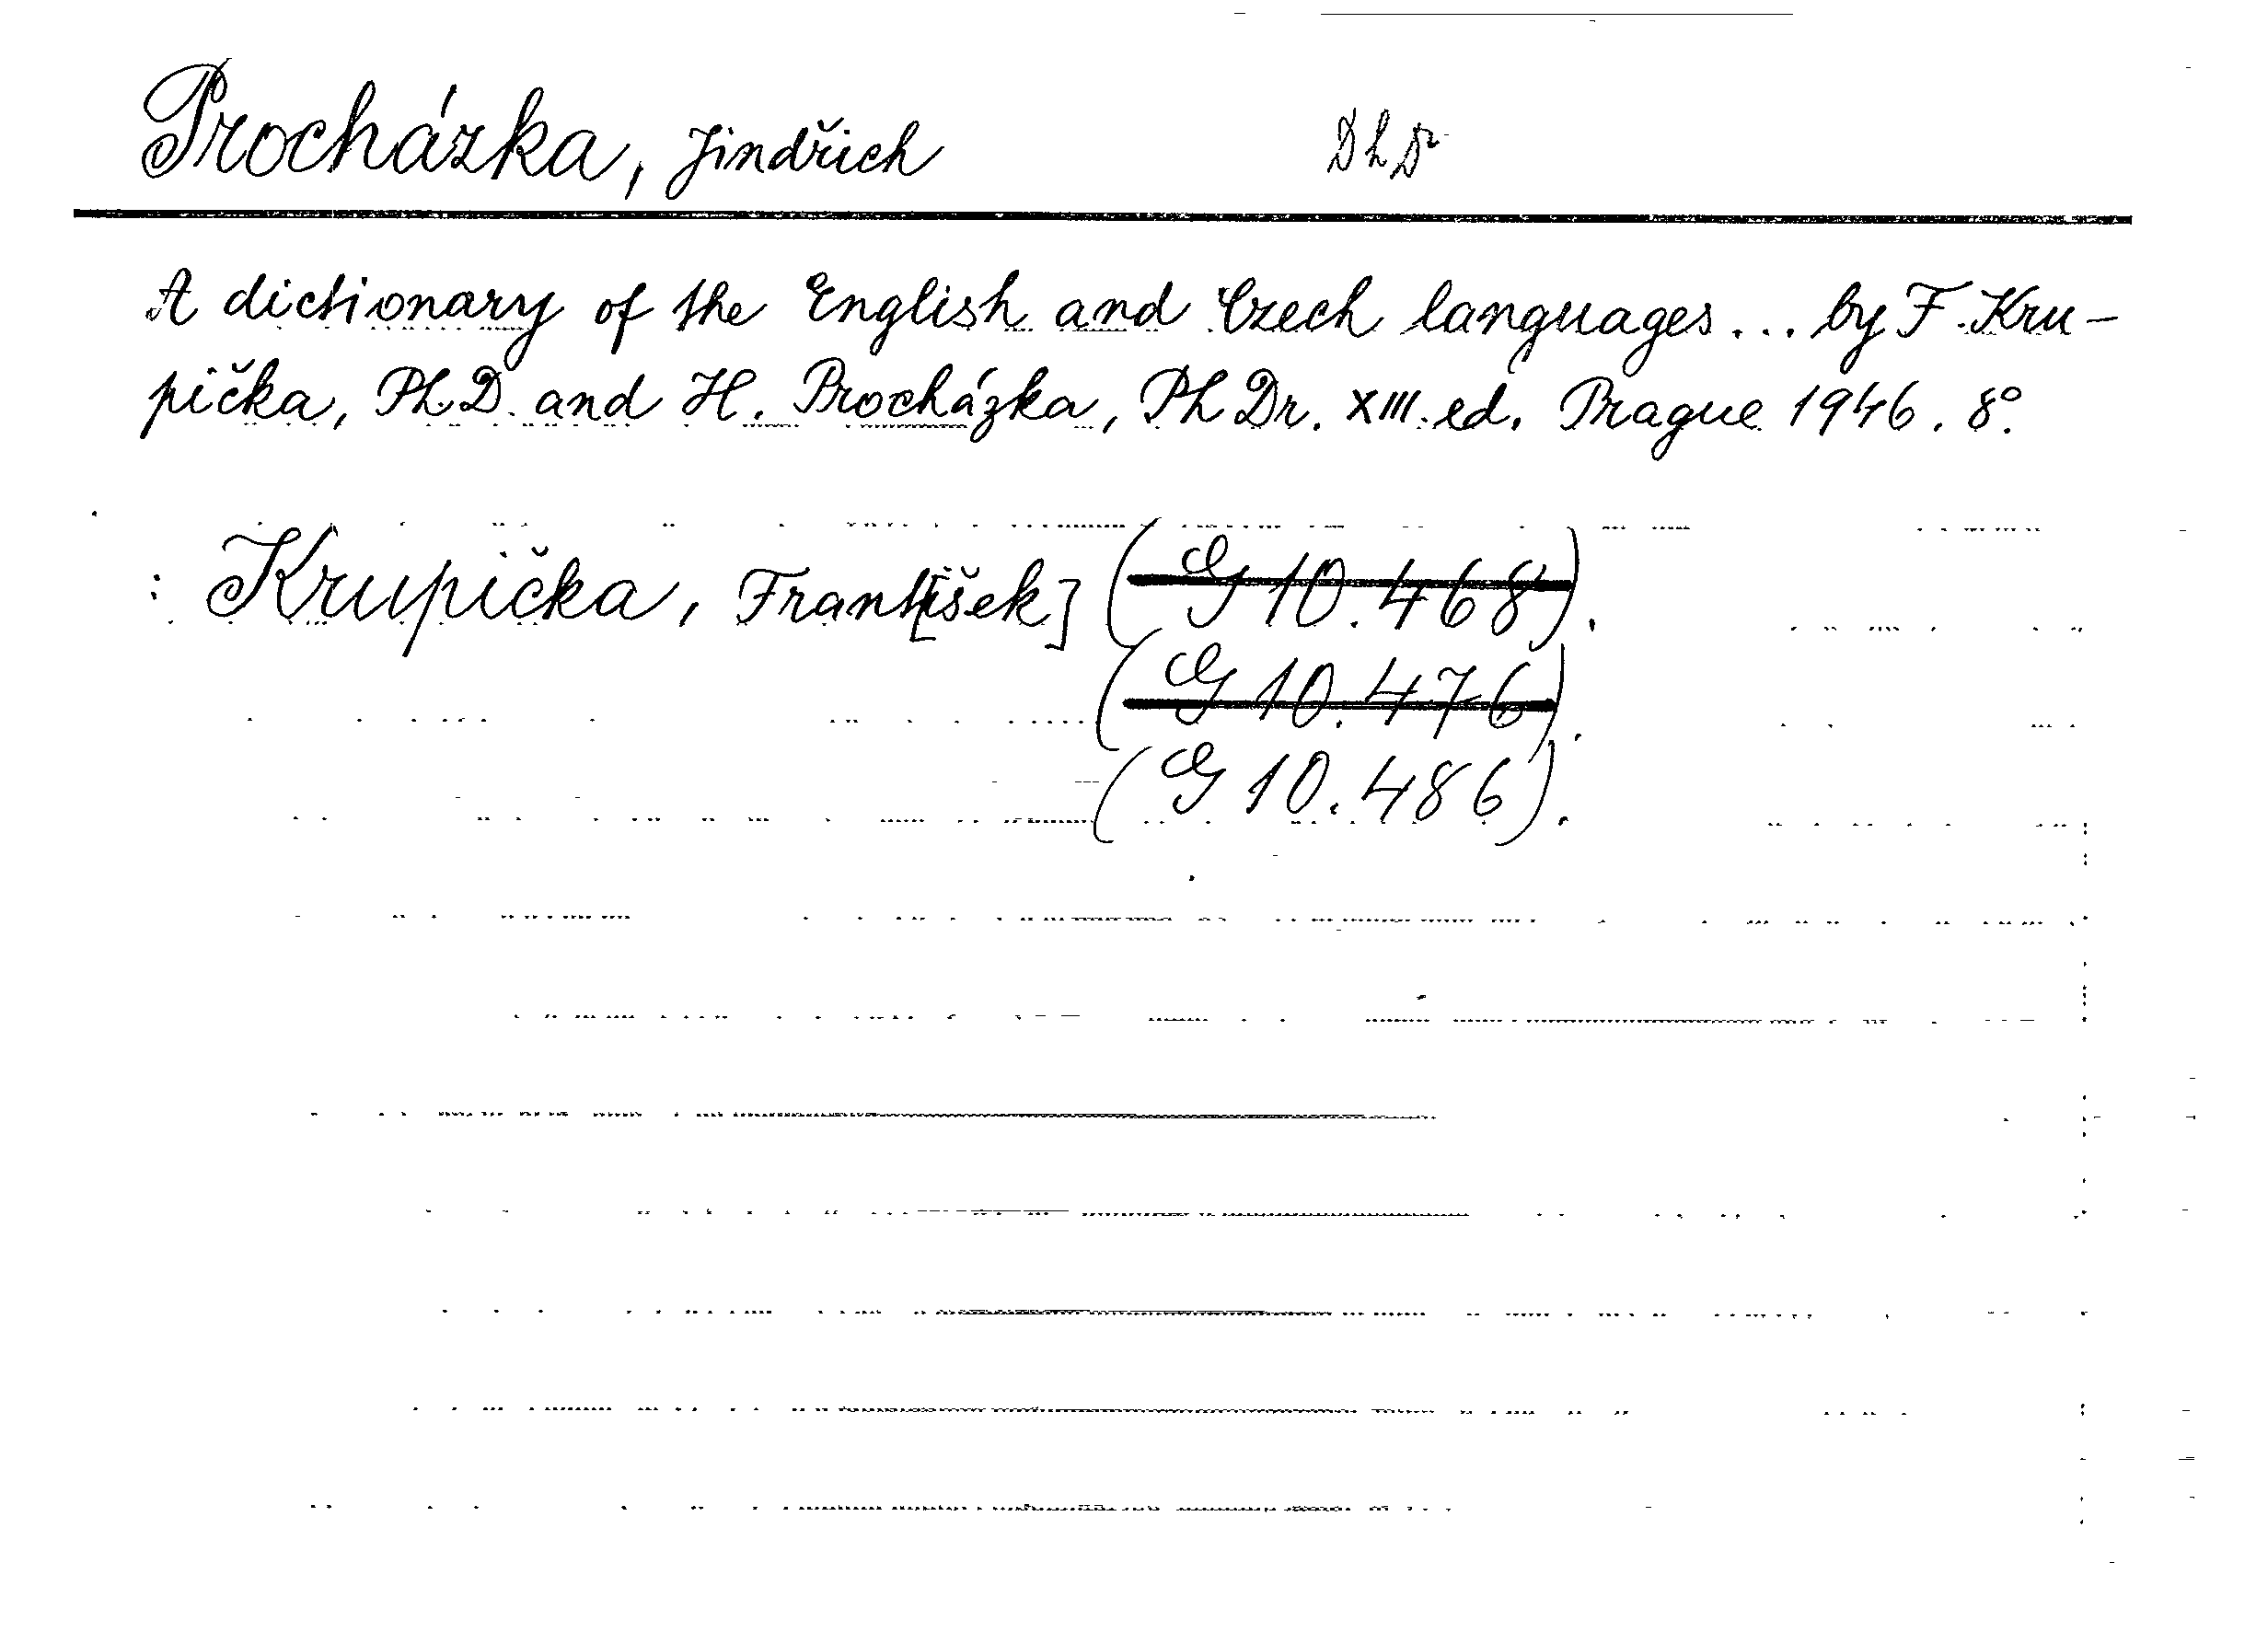 Procházka, Jindřich PhDr
A dictionary of the English and Czech languages... by F. Kru-
pička, Ph.D. and H. Procházka, PhDr. XIII. ed. Prague 1946. 8°.
: Krupička, Frant[išek] (G 10.468).
(G 10.476).
(G 10.486).